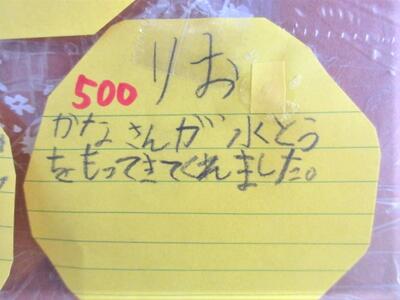 りお
500
かなさんが水とう
をもってきてくれました。